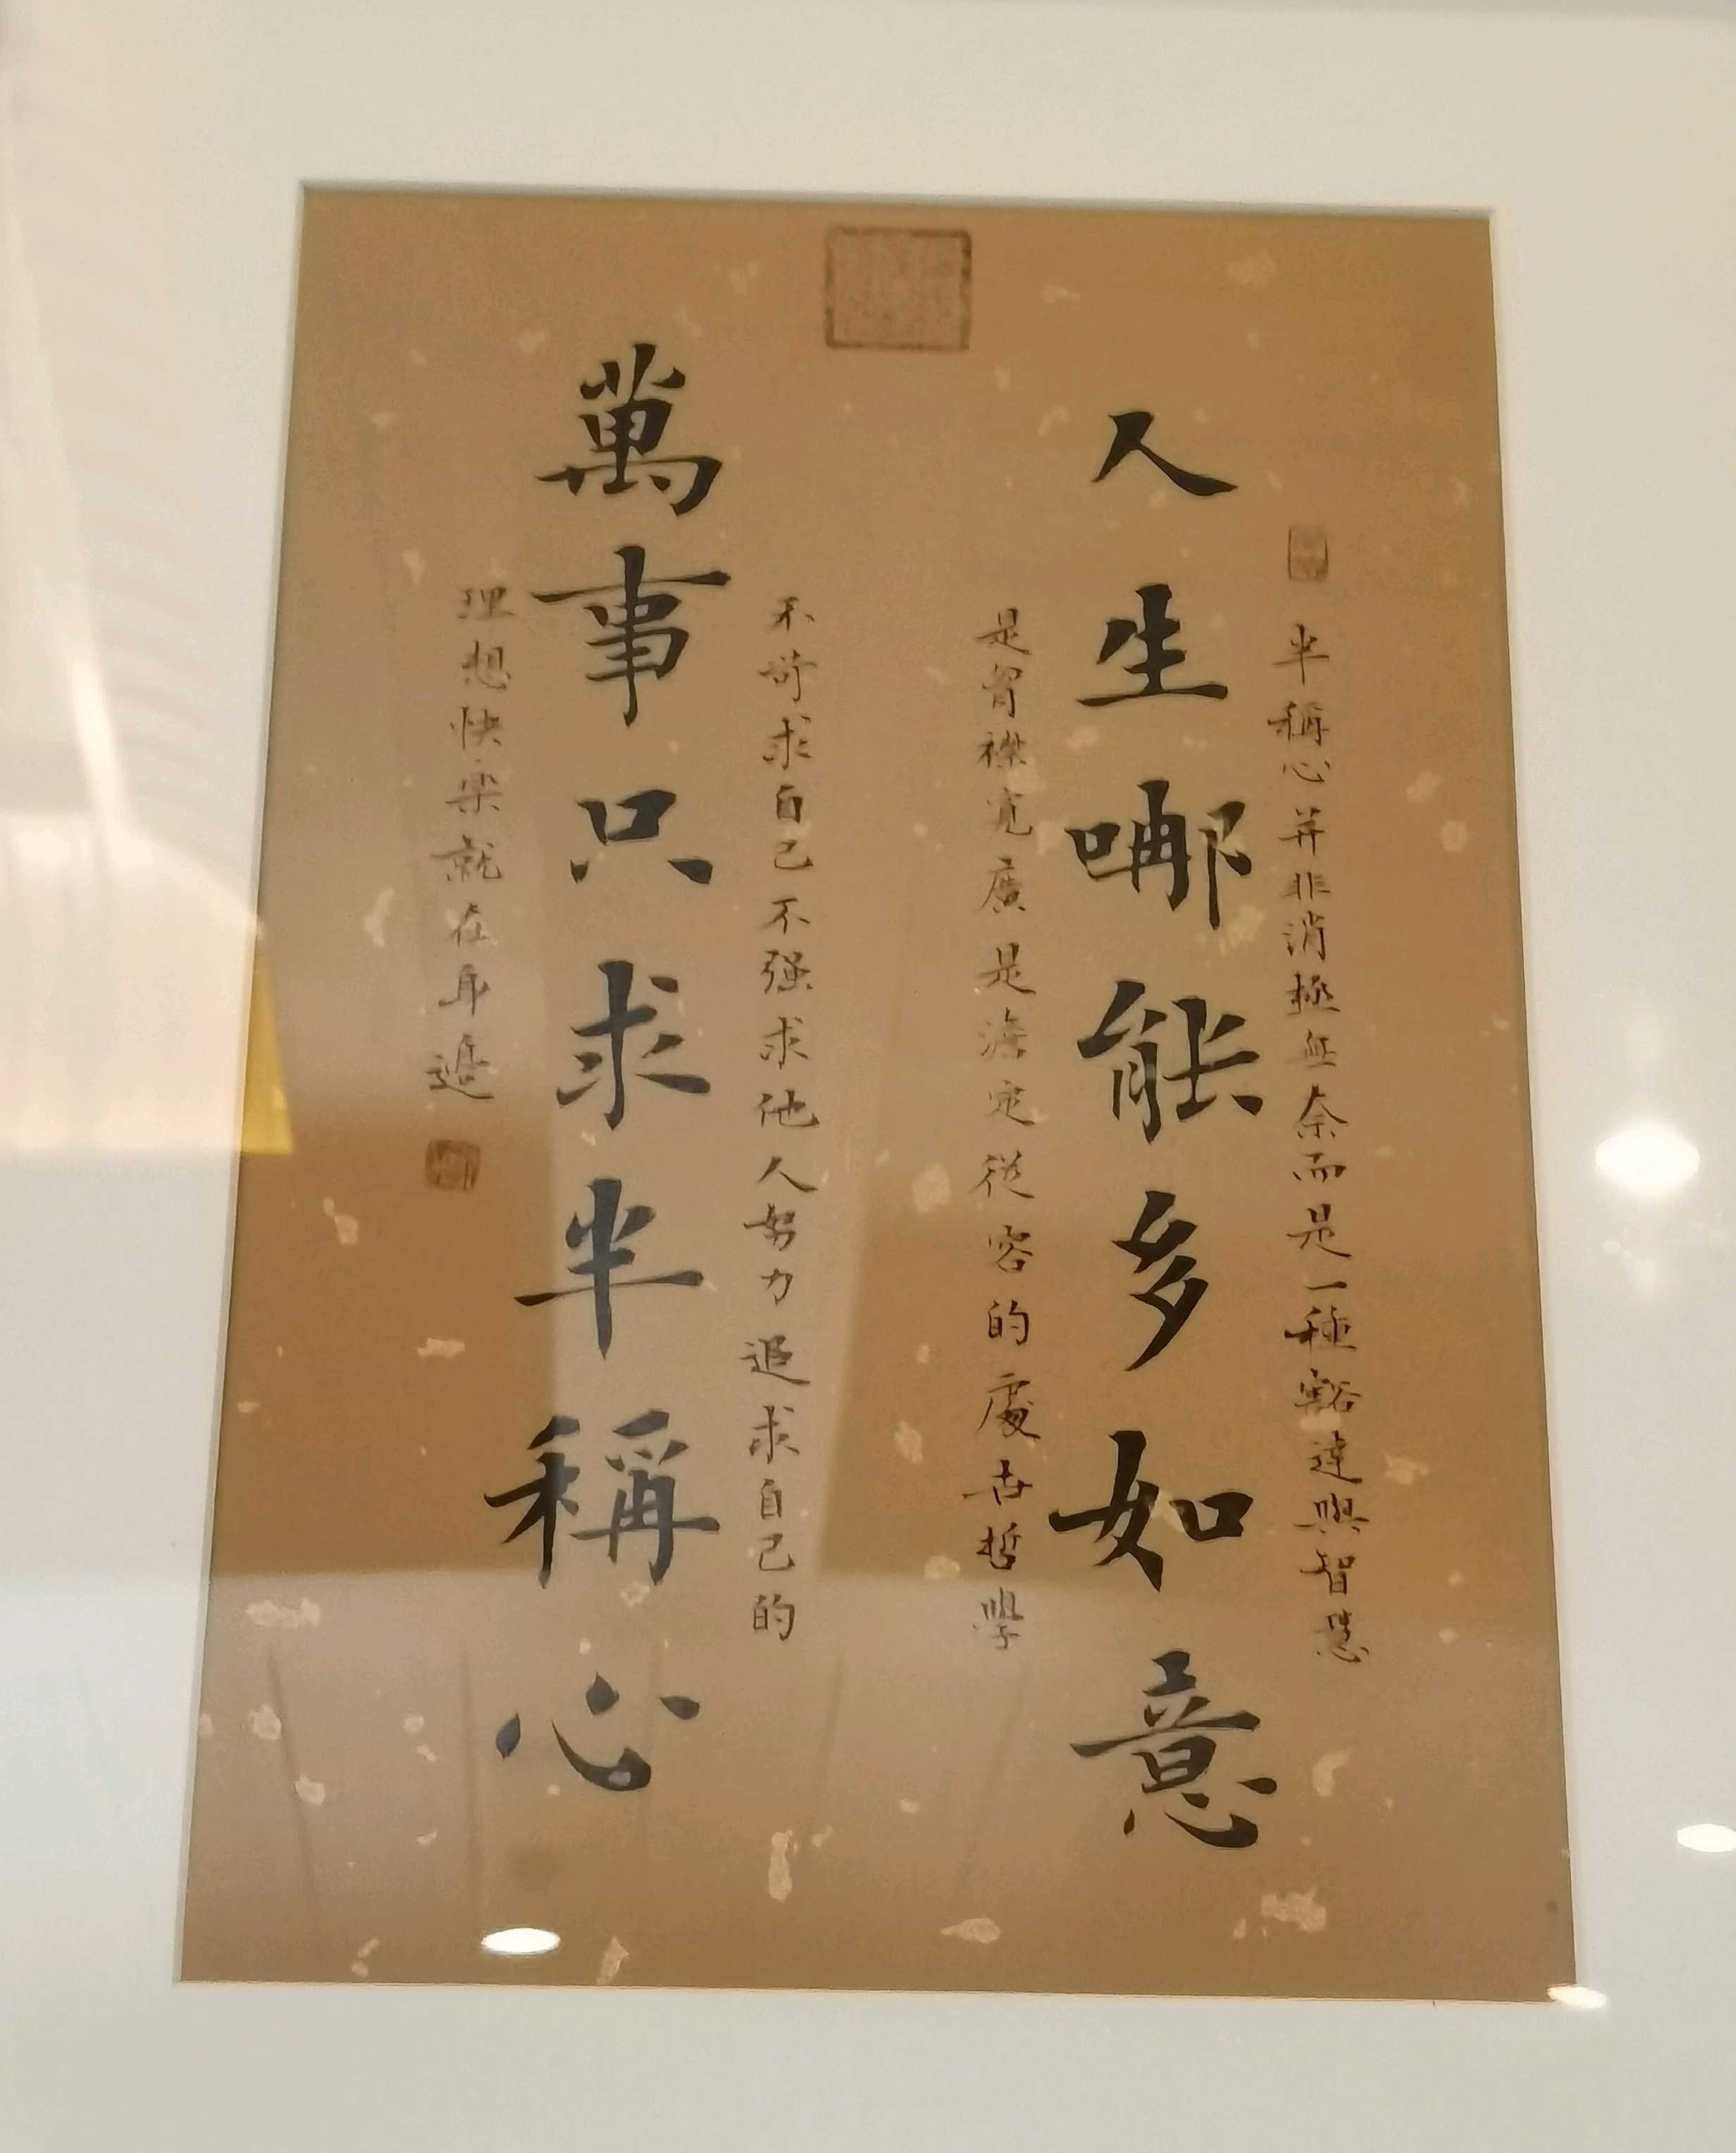 半稱心并非消極無奈而是一種豁達與智慧
人生哪能多如意
是胷襟寬廣是澹定從容的處世哲學
不苛求自己不强求他人努力追求自己的
萬事只求半稱心
理想快樂就在身邊